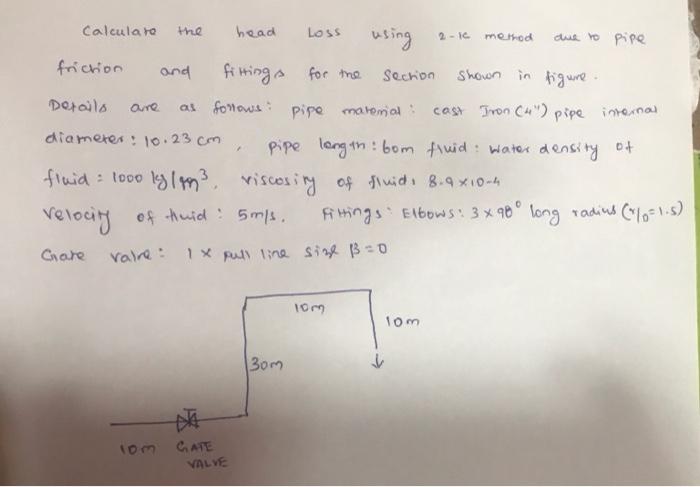 Calculate the head Loss using 2-K method due to pipe
friction and fittings for the Section Shown in figure.
Details are as follows: pipe material: cast Iron (4") pipe internal
diameter: 10.23 cm, pipe length: 60m fluid: water density of
fluid = 1000 kg/m³, viscosity of fluid: 8.9 x 10-4
velocity of fluid: 5m/s. Fittings: Elbows: 3 x 90° long radius (r/D=1.5)
Gate valve: 1 x full line size β=0
10m
10m
30m
10m GATE
VALVE